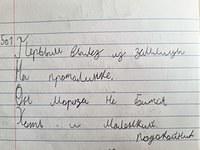 501
Первым вылез из землицы
На проталинке.
Он мороза не боится
Хоть и маленький
подснежник